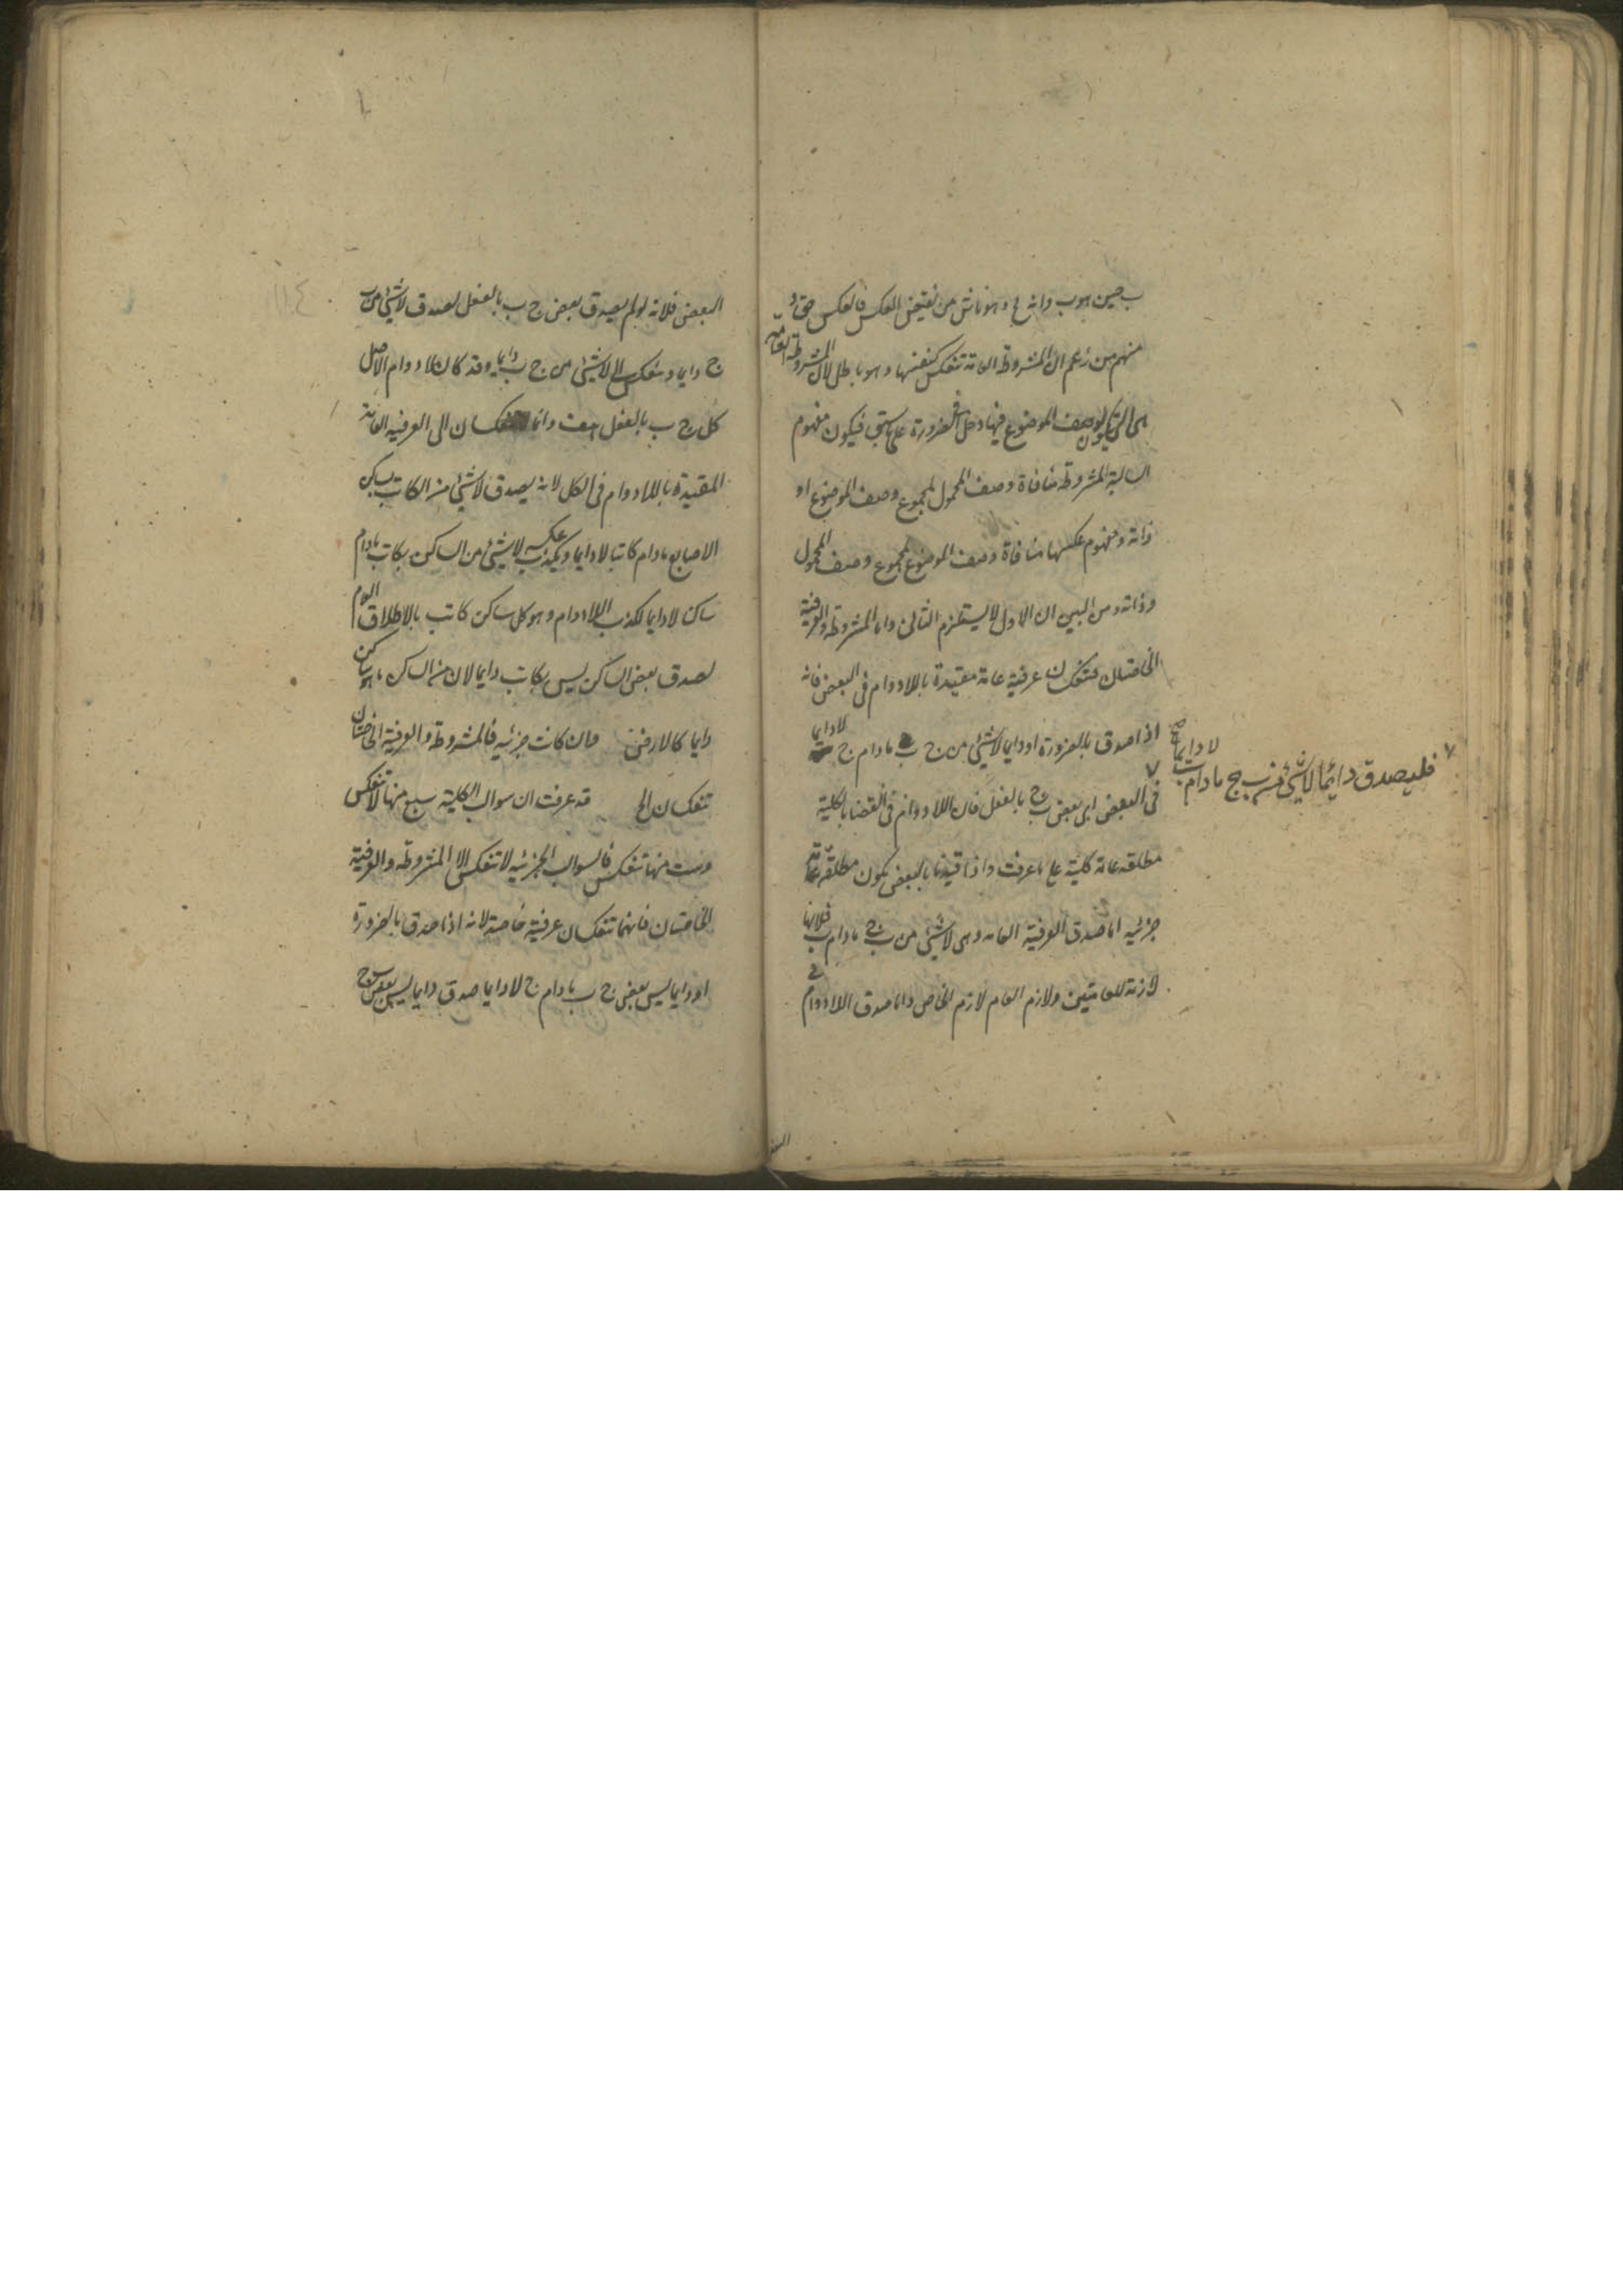 ب حين هو ب وانه مح وهو ناش من نقيض العكس فالعكس حق و
منهم من زعم ان المشروطة العامة تنعكس كنفسها وهو باطل لان المشروطة العامة
هى التى يكون لوصف الموضوع فيها دخل فى الضرورة على ما سبق فيكون مفهوم
السالبة المشروطة منافاة وصف المحمول لمجموع وصف الموضوع او
ذاته ومفهوم عكسها منافاة وصف الموضوع لمجموع وصف المحمول
وذاته ومن البين ان الاول لا يستلزم الثانى واما المشروطة والعرفية
الخاصتان فتنعكسان عرفية عامة مقيدة باللادوام فى البعض فانه
اذا صدق بالضرورة او دايما لا شئ من ج ب مادام ج لادايما
فليصدق دائما لا شئ من ب ج مادام ب لا دايما صح
فى البعض اى بعض ب ج بالفعل فان اللادوام فى القضايا الكلية
مطلقه عامة كلية على ما عرفت واذا قيدنا بالبعض تكون مطلقة عامة
جزئيه اما صدق العرفية العامه وهى لا شئ من ب ج مادام ب فلانها
لازمة للعامتين ولازم العام لازم الخاص واما صدق اللادوام فى
البعض
البعض فلانه لو لم يصدق بعض ج ب بالفعل لصدق لا شئ من ب
ج دايما وينعكس الى لا شئ من ج ب دايما وقد كان لادوام الاصل
كل ج ب بالفعل هف وانما ينعكسان الى العرفيه العامة
المقيدة باللادوام فى الكل لانه يصدق لا شئ من الكاتب بساكن
الاصابع مادام كاتبا لادايما ويكذب عكسه لا شئ من الساكن بكاتب مادام
ساكن لادايما لكذب اللادوام وهو كل ساكن كاتب بالاطلاق العام
لصدق بعض الساكن ليس بكاتب دايما لان من الساكن ما هو ساكن
دايما كالارض فان كانت جزئيه فالمشروطة والعرفية الخاصتان
تنعكسان الخ قد عرفت ان سوالب الكلية سبع منها لا تنعكس
وست منها تنعكس فالسوالب الجزئيه لا تنعكس الا المشروطه والعرفية
الخاصتان فانهما تنعكسان عرفية خاصة لانه اذا صدق بالضرورة
او دايما ليس بعض ج ب مادام ج لادايما صدق دايما ليس بعض ب ج